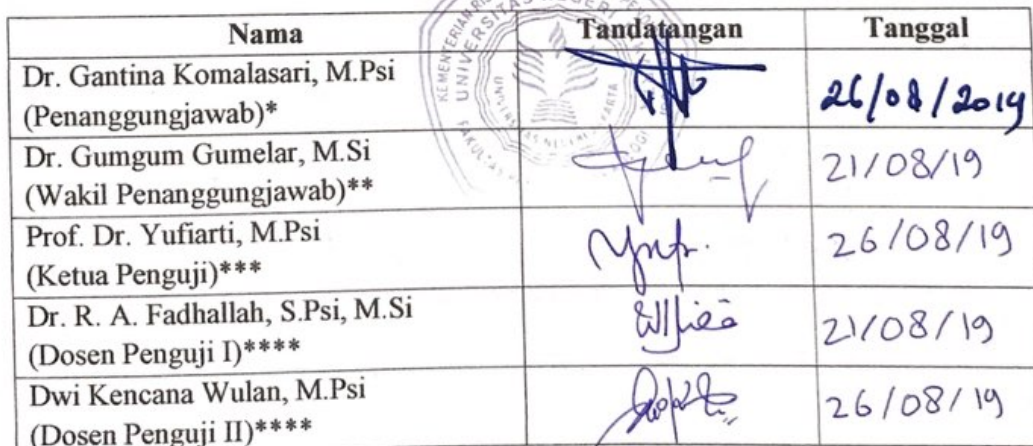 Nama Tandatangan Tanggal
Dr. Gantina Komalasari, M.Psi
(Penanggungjawab)* 26/08/2019
Dr. Gumgum Gumelar, M.Si
(Wakil Penanggungjawab)** 21/08/19
Prof. Dr. Yufiarti, M.Psi
(Ketua Penguji)*** 26/08/19
Dr. R. A. Fadhallah, S.Psi, M.Si
(Dosen Penguji I)**** 21/08/19
Dwi Kencana Wulan, M.Psi
(Dosen Penguji II)**** 26/08/19